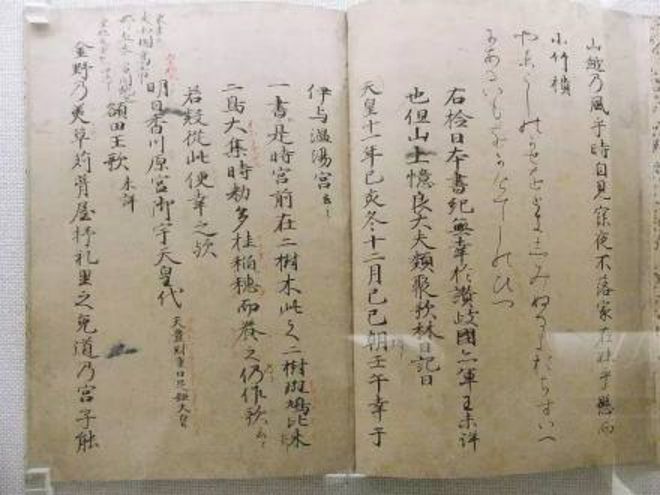 山越乃風乎時自見寐夜不落家在妹乎懸而
小竹樻
やまこしのかせをときしみぬるよおちすいへ
にあるいもをかけてしのひつ
右検日本書紀無幸於讃岐國亦軍王未詳
也但山上憶良大夫類聚歌林曰記曰
天皇十一年己亥冬十二月己巳朔壬午幸于
伊与温湯宮云々
一書是時宮前在二樹木此之二樹斑鳩比米
二鳥大集時勅多挂稲穂而養之仍作歌云々
若疑從此便幸之歟
明日香川原宮御宇天皇代 天豊財重日足姫天皇
額田王歌 未詳
金野乃美草苅葺屋杼礼里之兎道乃宮子能